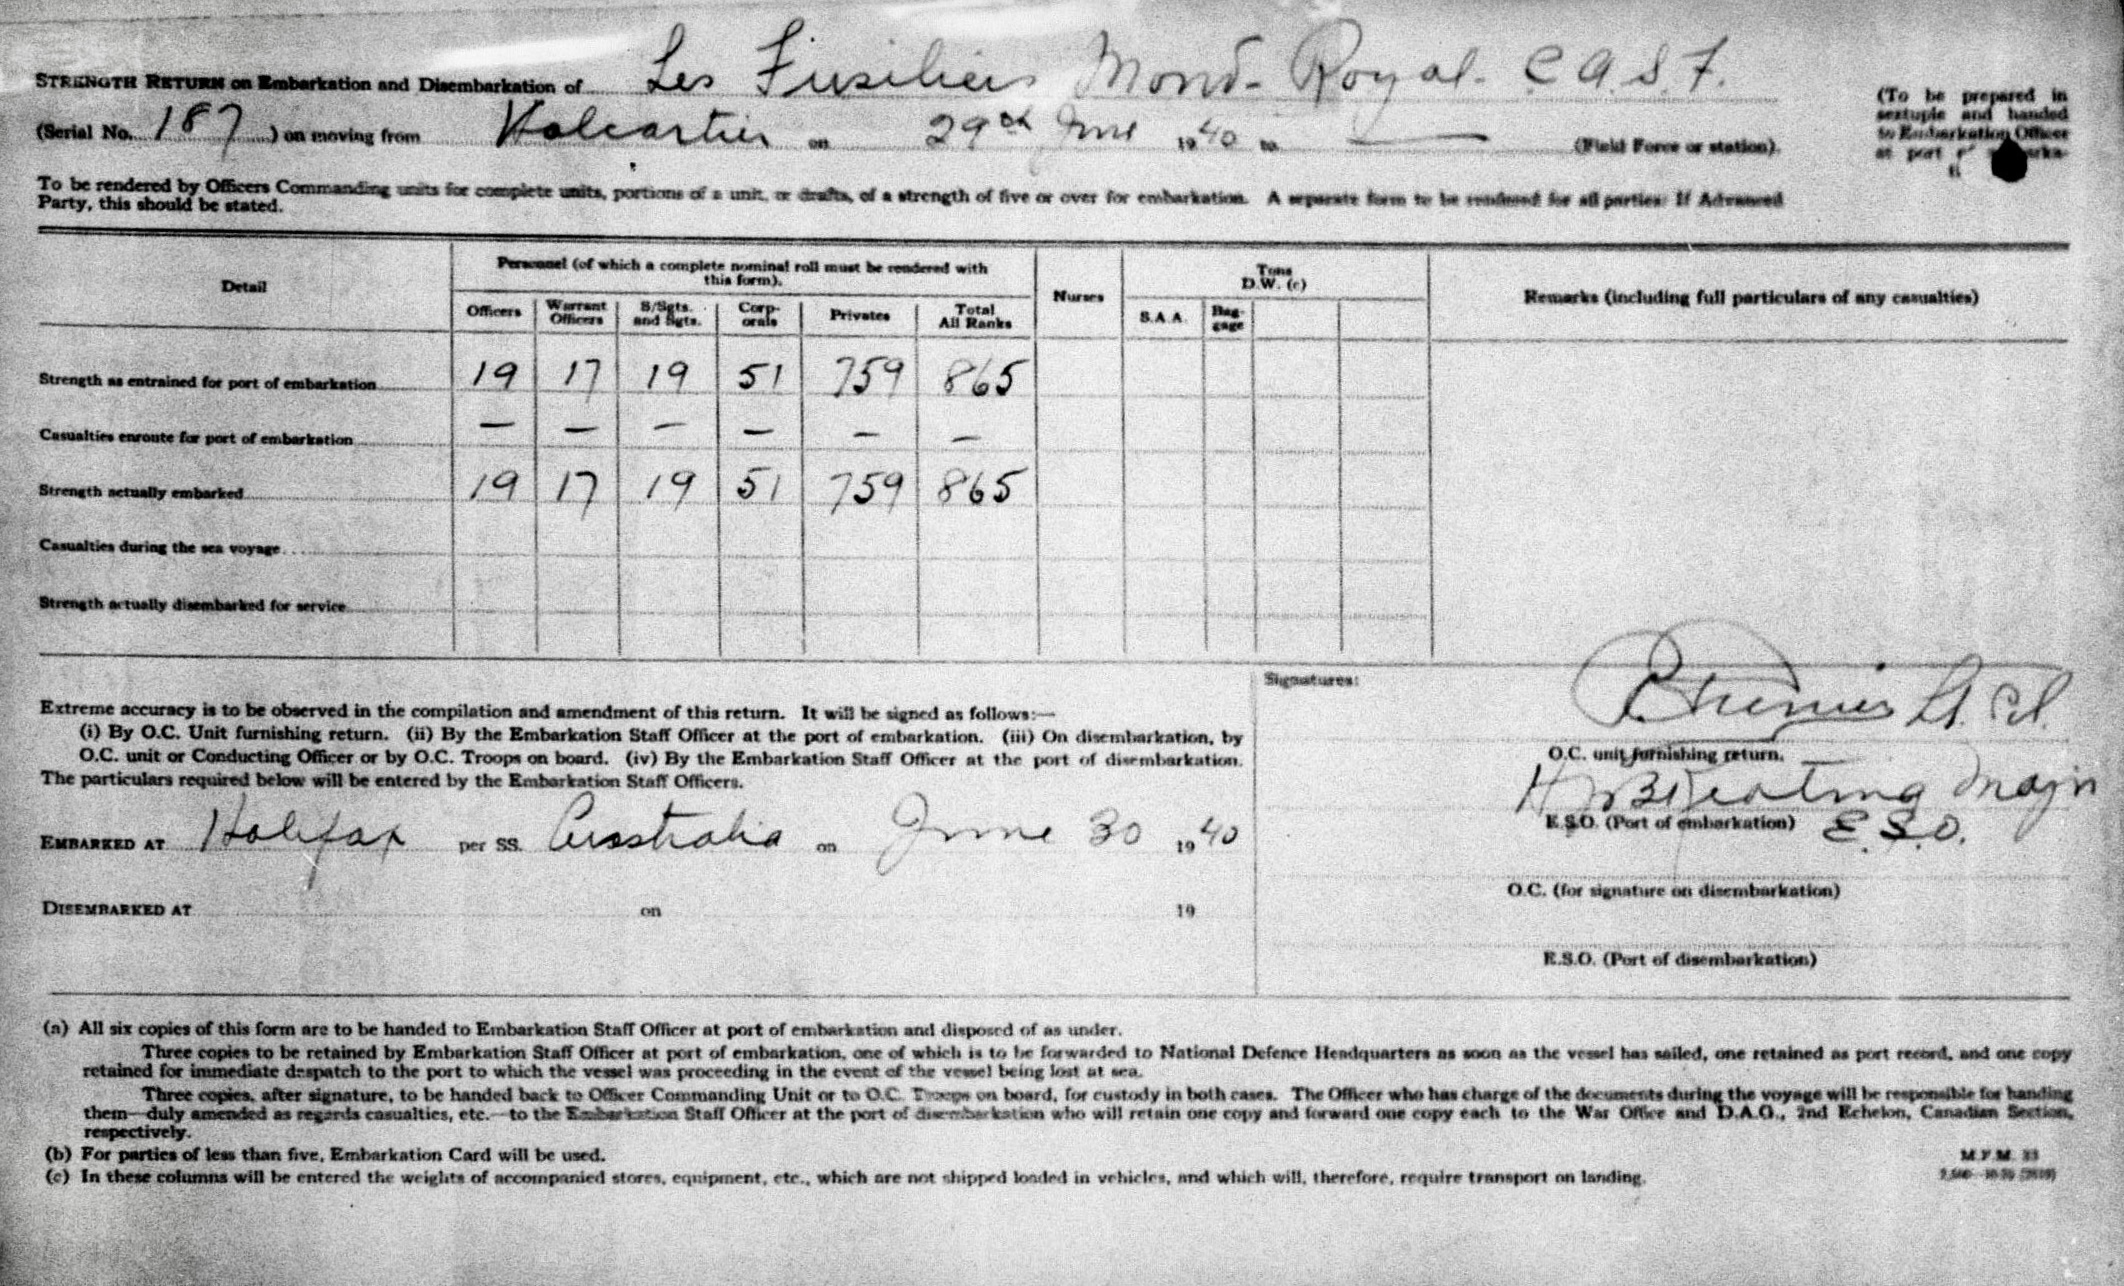 STRENGTH RETURN on Embarkation and Disembarkation of Les Fusiliers Mont-Royal. C.A.S.F.
(Serial No. 187) on moving from Valcartier on 29th June 1940 to — (Field Force or station).
(To be prepared in
sextuple and handed
to Embarkation Officer
at port
To be rendered by Officers Commanding units for complete units, portions of a unit, or drafts, of a strength of five or over for embarkation. A separate form to be rendered for all parties. If Advanced
Party, this should be stated.
Detail
Personnel (of which a complete nominal roll must be rendered with
this form).
Nurses
Tons
D.W. (c)
Remarks (including full particulars of any casualties)
Officers Warrant Officers S/Sgts. and Sgts. Corp- orals Privates Total All Ranks S.A.A. Bag- gage
Strength as entrained for port of embarkation 19 17 19 51 759 865
Casualties enroute for port of embarkation — — — — — —
Strength actually embarked 19 17 19 51 759 865
Casualties during the sea voyage
Strength actually disembarked for service
Extreme accuracy is to be observed in the compilation and amendment of this return. It will be signed as follows:—
(i) By O.C. Unit furnishing return. (ii) By the Embarkation Staff Officer at the port of embarkation. (iii) On disembarkation, by
O.C. unit or Conducting Officer or by O.C. Troops on board. (iv) By the Embarkation Staff Officer at the port of disembarkation.
The particulars required below will be entered by the Embarkation Staff Officers.
EMBARKED AT Halifax per SS. Australia on June 30 1940
DISEMBARKED AT on 19
Signatures:
Lt. Col.
O.C. unit furnishing return.
Keating Major
E.S.O. (Port of embarkation) E.S.O.
O.C. (for signature on disembarkation)
E.S.O. (Port of disembarkation)
(a) All six copies of this form are to be handed to Embarkation Staff Officer at port of embarkation and disposed of as under.
Three copies to be retained by Embarkation Staff Officer at port of embarkation, one of which is to be forwarded to National Defence Headquarters as soon as the vessel has sailed, one retained as port record, and one copy
retained for immediate despatch to the port to which the vessel was proceeding in the event of the vessel being lost at sea.
Three copies, after signature, to be handed back to Officer Commanding Unit or to O.C. Troops on board, for custody in both cases. The Officer who has charge of the documents during the voyage will be responsible for handing
them—duly amended as regards casualties, etc.—to the Embarkation Staff Officer at the port of disembarkation who will retain one copy and forward one copy each to the War Office and D.A.G., 2nd Echelon, Canadian Section,
respectively.
(b) For parties of less than five, Embarkation Card will be used.
(c) In these columns will be entered the weights of accompanied stores, equipment, etc., which are not shipped loaded in vehicles, and which will, therefore, require transport on landing.
M.F.M. 23